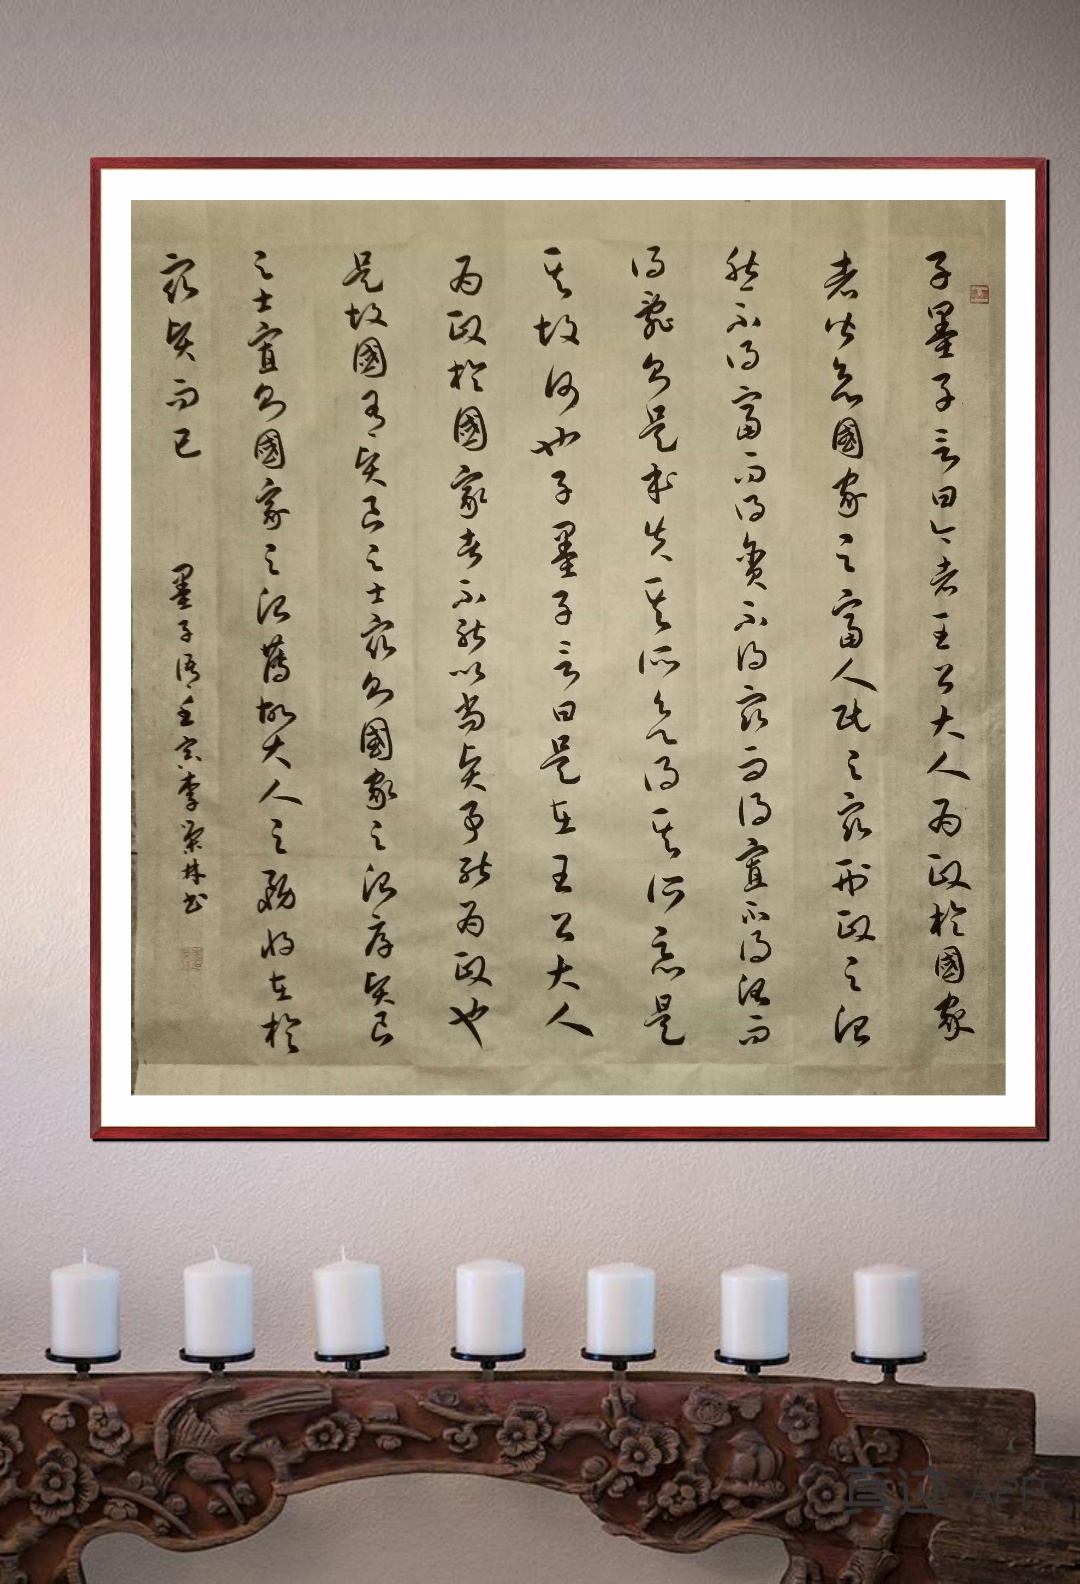 子墨子言曰今者王公大人為政於國家
者皆欲國家之富人民之眾刑政之治
然不得富而得貧不得眾而得寡不得治而
得亂則是本失其所欲得其所惡是
其故何也子墨子言曰是在王公大人
為政於國家者不能以尚賢事能為政也
是故國有賢良之士眾則國家之治厚賢良
之士寡則國家之治薄故大人之務將在於
眾賢而已
墨子語壬寅李林書
真迹 APP